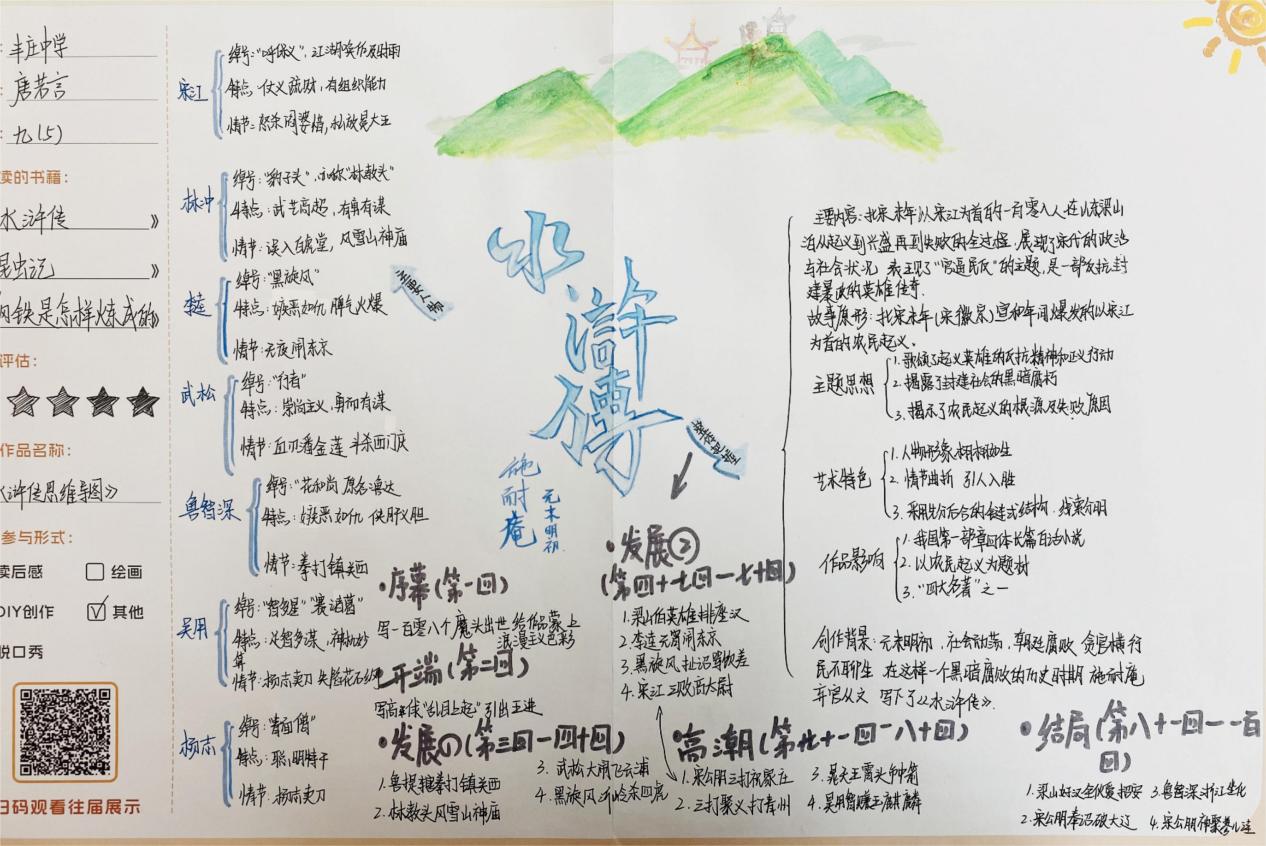 丰庄中学
唐若言
九(5)
读的书籍：
水浒传》
昆虫记》
钢铁是怎样炼成的》
评估：
作品名称：
水浒传思维导图》
参与形式：
读后感
绘画
DIY创作
其他
脱口秀
扫码观看往届展示
宋江
绰号："呼保义"，江湖唤作及时雨
特点：仗义疏财，有组织能力
情节：怒杀阎婆惜，私放晁天王
林冲
绰号："豹子头"，亦称"林教头"
特点：武艺高超，有勇有谋
情节：误入白虎堂，风雪山神庙
李逵
绰号："黑旋风"
特点：嫉恶如仇 脾气火爆
情节：元夜闹东京
武松
绰号："行者"
特点：崇尚主义，勇而有谋
情节：血刃潘金莲 斗杀西门庆
鲁智深
绰号："花和尚 原名鲁达
特点：嫉恶如仇 侠肝义胆
情节：拳打镇关西
吴用
绰号："智多星"
特点：足智多谋，神机妙
算
情节：杨志卖刀 失陷花石纲
杨志
绰号："青面兽"
特点：聪明
情节：杨志卖刀
主要人物
水浒傳
施耐庵
元末明初
·序幕(第一回)
写一百零八个魔头出世 给作品蒙上
浪漫主义色彩
开端(第二回)
写高俅"乱自上起"引出王进
·发展①(第三回一四十回)
1.鲁提辖拳打镇关西
2.林教头风雪山神庙
3.武松大闹飞云浦
4.黑旋风沂岭杀四虎
·发展②
(第四十七回一七十回)
1.梁山伯英雄排座次
2.李逵元宵闹东京
3.黑旋风扯诏骂钦差
4.宋江三败高太尉
·高潮(第七十一回一八十回)
1.宋公明三打祝家庄
2.三打聚义打青州
3.晁天王曾头中箭
4.吴用智赚玉麒麟
·结局(第八十一回一一百
回)
1.梁山好汉全伙受招安
2.宋公明奉诏破大辽
3.鲁智深浙江坐化
4.宋公明神聚蓼儿洼
主要内容：北宋末年以宋江为首的一百零八人在以梁山
泊从起义到兴盛再到失败的全过程，展现了宋代的政治
与社会状况 表现了"官逼民反"的主题，是一部反抗封
建暴政的英雄传奇.
故事原形：北宋末年(宋徽宗)宣和年间爆发的以宋江
为首的农民起义.
主题思想
1.歌颂了起义英雄的反抗精神和正义行动
2.揭露了封建社会的黑暗腐朽
3.揭示了农民起义的根源及失败原因
艺术特色
1.人物形象栩栩如生
2.情节曲折 引人入胜
3.采用先分后合的链式结构，线索分明
作品影响
1.我国第一部章回体长篇白话小说
2.以农民起义为题材
3."四大名著"之一
创作背景：元末明初，社会动荡，朝廷腐败 贪官横行
民不聊生 在这样一个黑暗腐败的历史时期 施耐庵
弃官从文 写下了《水浒传》.